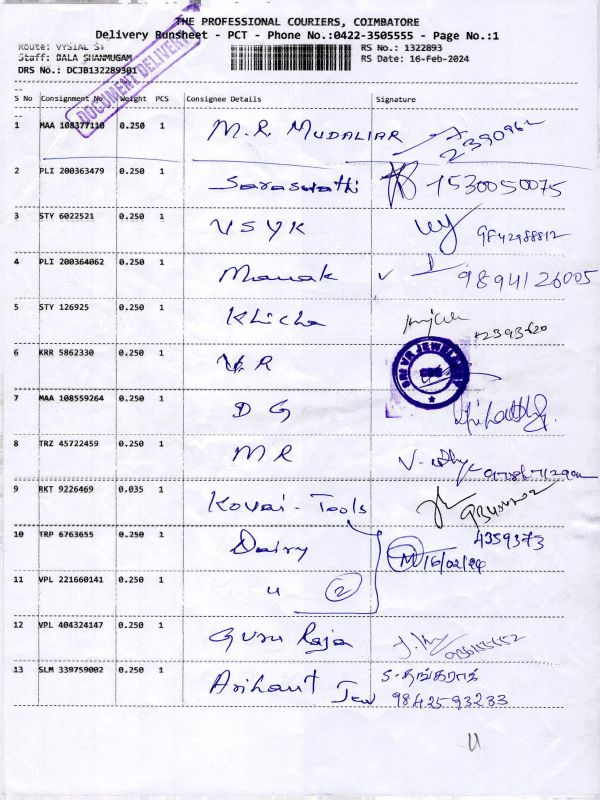 THE PROFESSIONAL COURIERS, COIMBATORE
Delivery Runsheet - PCT - Phone No.:0422-3505555 - Page No.:1
Route: VYSIAL ST
Staff: BALA SHANMUGAM
DRS No.: DCJB132289301
RS No.: 1322893
RS Date: 16-Feb-2024
DOCUMENT DELIVERY
S No Consignment No Weight PCS Consignee Details Signature
1 MAA 108377110 0.250 1 M.R MUDALIAR 2390962
2 PLI 200363479 0.250 1 Saraswathi 7530050075
3 STY 6022521 0.250 1 VSYK 9842988812
4 PLI 200364062 0.250 1 Manak 9894126005
5 STY 126925 0.250 1 Khicha 2393620
6 KRR 5862330 0.250 1 VR SRI VR JEWELLERY CBE
7 MAA 108559264 0.250 1 DG
8 TRZ 45722459 0.250 1 MR
9 RKT 9226469 0.035 1 Kovai - Tools
10 TRP 6763655 0.250 1 Dairy 4359373
M 16/02/24
11 VPL 221660141 0.250 1 u 2
12 VPL 404324147 0.250 1 Guru Raja
13 SLM 339759002 0.250 1 Arihant Jew S. தங்கராஜ்
9842593233